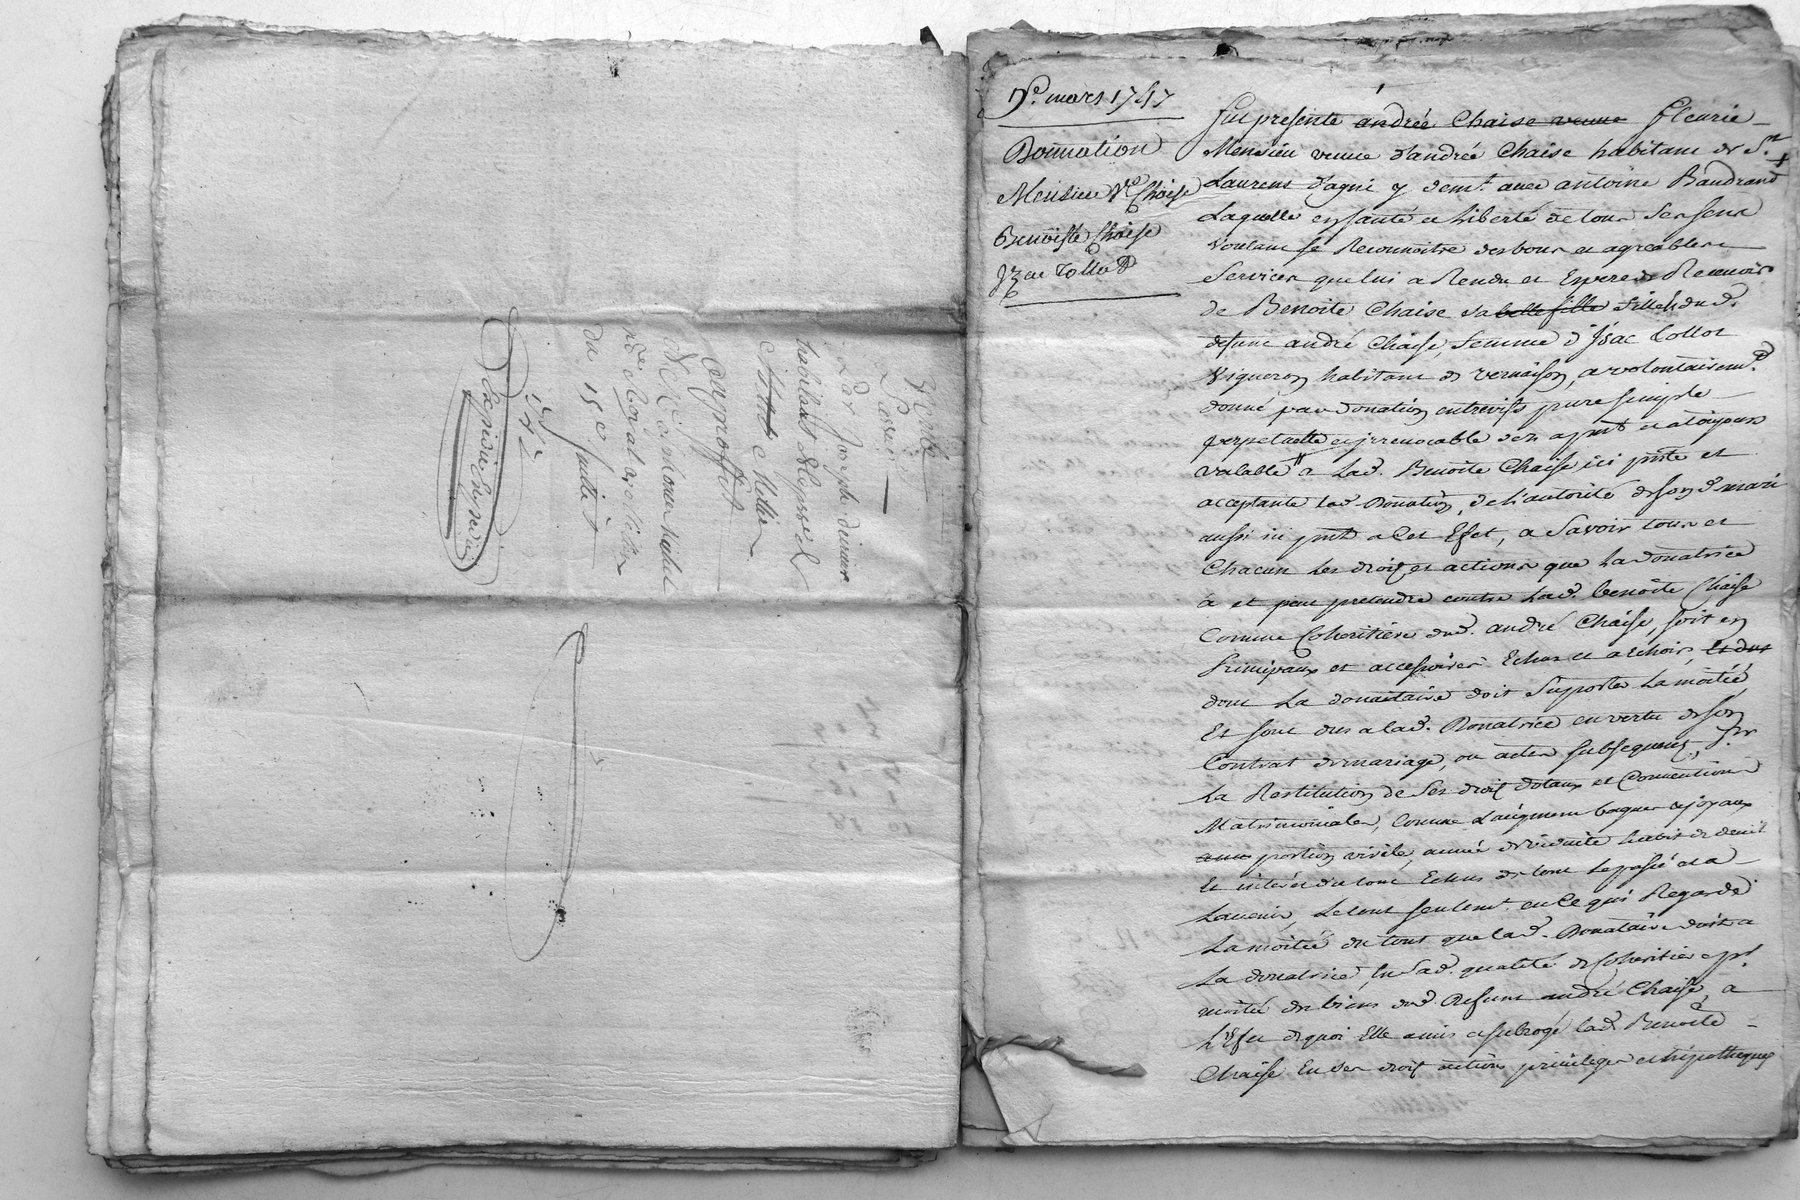 Vente
Passée
Par Joseph
habitant
Millier
Au proffit
du 15e Juillet
1742
Expédié
mars 1747
Donnation
Mensieu Ve Chaise
Benoiste Chaise
Fut presente andrée Chaise veuve fleurie
Mensieu veuve d'andrée Chaise habitant de St
Laurens d'agni y demt avec antoine Baudrand
Laquelle en santé et liberté de tous ses sens
voulant se Reconnoitre des bons et agreables
Services que lui a Rendu et Espere de Recevoir
de Benoite Chaise sa belle fille fille dud.
defunt andré Chaise, femme d'Isac Collot
Vigneron habitant de vernaison, a volontairemt
donné par donation entrevifs pure simple
perpetuelle et irrevocable des apnt et a toujours
valable a lad. Benoite Chaise ici pnte et
acceptante lad Donation, de l'autorité de son d mari
aussi ici pnt a Cet Efet, a Savoir tous et
Chacun les droits et actions que La donatrice
a et peut pretendre contre Lad. benoite Chaise
Comme Coheritiere dud. andré Chaise, soit en
Principaux et accessoires Echus et a echoir, Et dus
dont La donnataire doit Suporter La moitié
Et sont dus a lad. Donatrice en vertu de son
Contrat de mariage, ou actes subsequents, pr
La Restitution de Ses droits dotaux et Conventions
Matrimoniales, Comme L'augment bagues et joyaux
portion virile, année de viduité habit de deuil
Et interets du tout Echus de tout le passé et a
L'avenir, Le tout seulemt en Ce qui Regarde
La moitié du tout que lad. Donataire doit a
La donatrice, En Sad. qualité de Coheritiere pr
moitié des biens dud. Defunt andré Chaise, a
L'Efet de quoi Elle a mis et subrogé lad. Benoite
Chaise En ses droits actions privileges et hipotheques